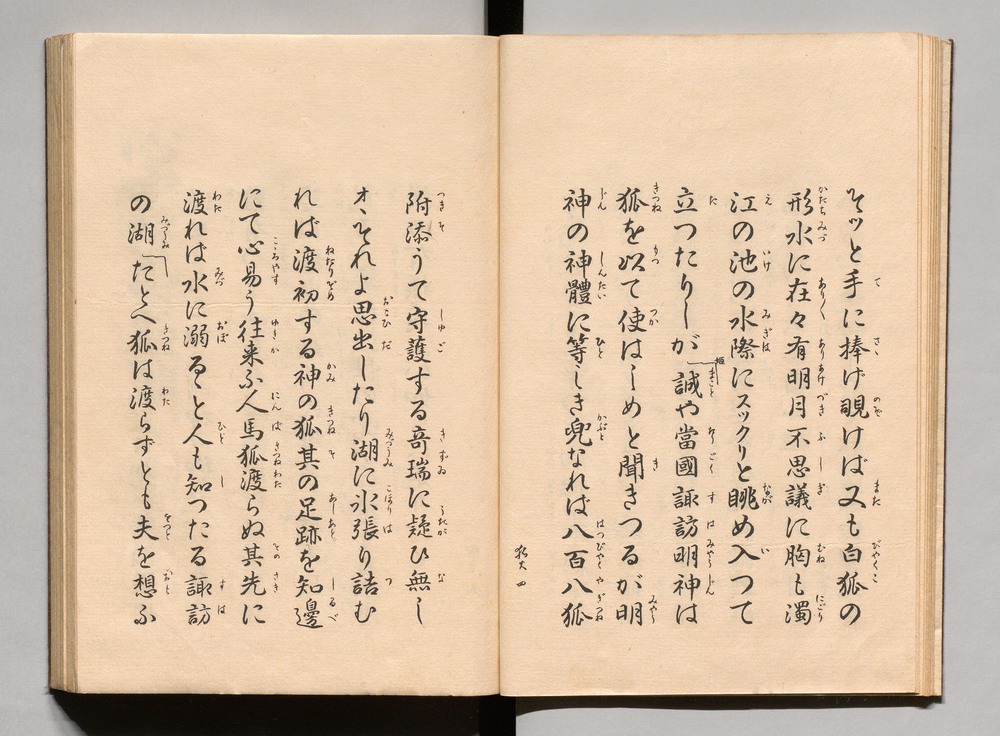 そッと手に捧げ覗けば又も白狐の
形水に在々有明月不思議に胸も濁
江の池の水際にスックリと眺め入つて
立つたりしが誠や當國諏訪明神は
狐を以て使はしめと聞きつるが明
神の神體に等しき兜なれば八百八狐
附添うて守護する奇瑞に疑ひ無し
オヽそれよ思出したり湖に氷張り詰む
れば渡初する神の狐其の足跡を知邊
にて心易う往来ふ人馬狐渡らぬ其先に
渡れば水に溺るゝと人も知つたる諏訪
の湖たとへ狐は渡らずとも夫を想ふ